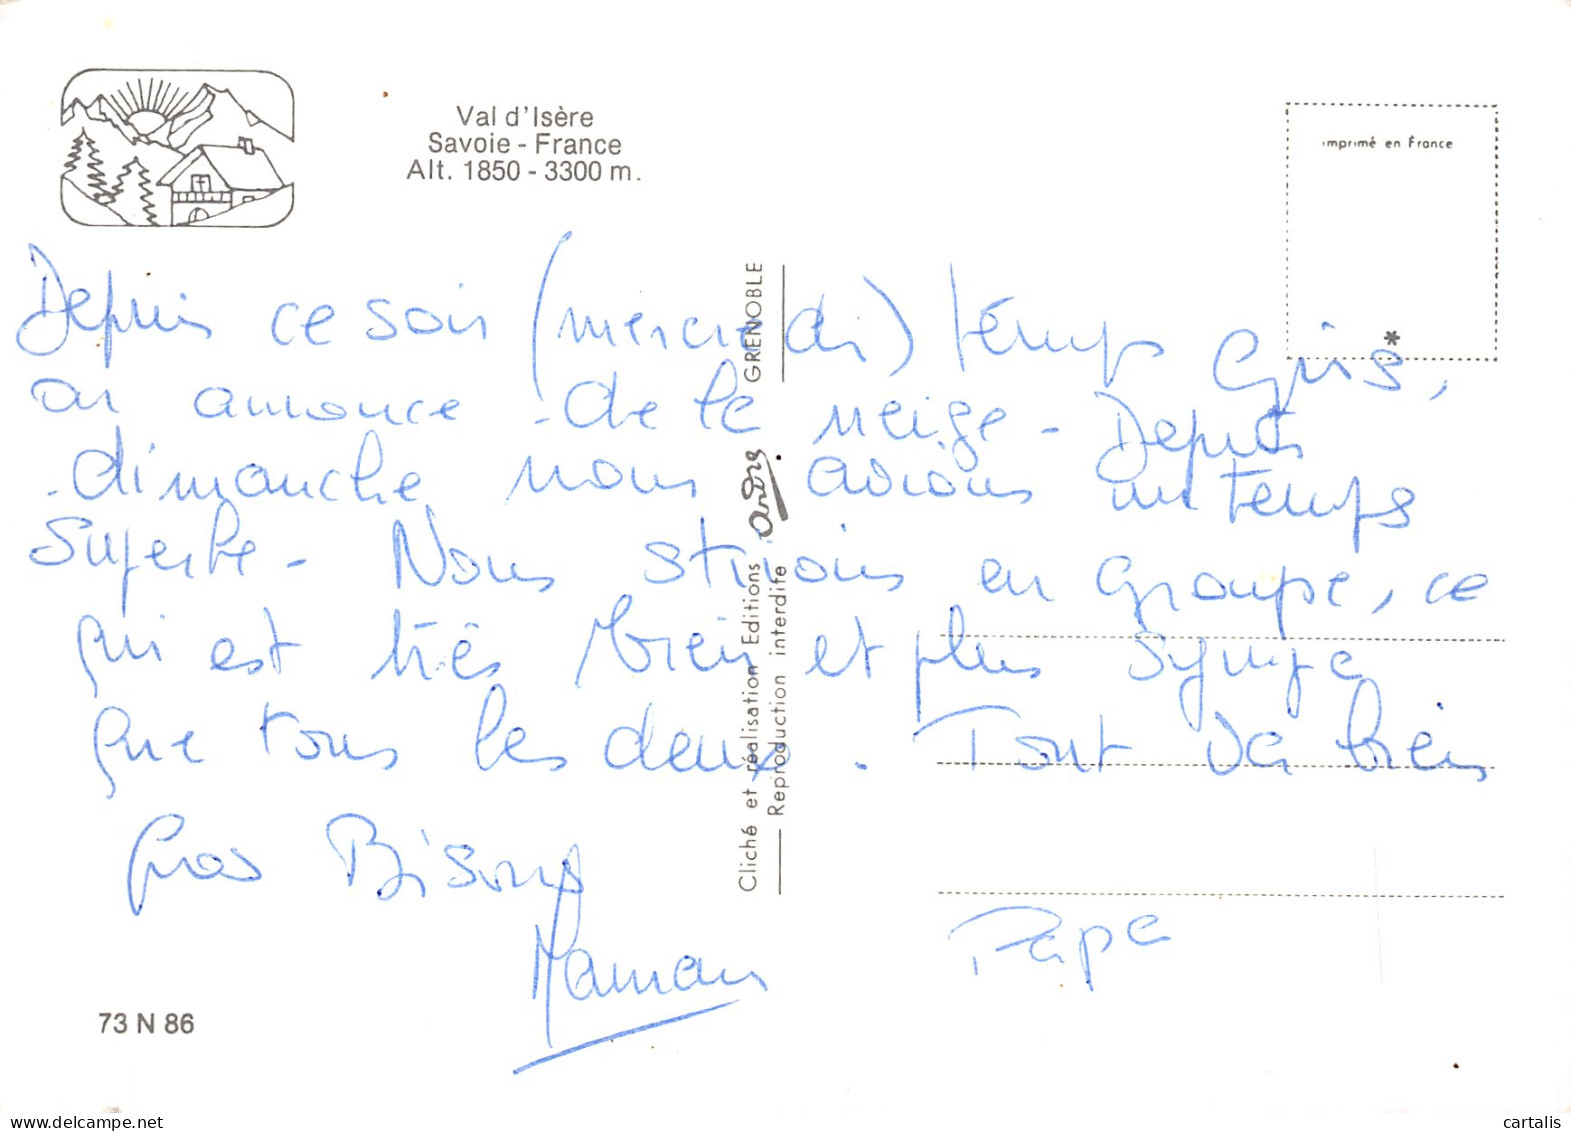 Val d'Isère
Savoie - France
Alt. 1850 - 3300 m.
imprimé en France
*
Depuis ce soir (mercredi) temps gris,
on annonce - de la neige - Depuis
- dimanche nous avions un temps
Superbe - Nous skions en groupe, ce
qui est très bien et plus sympa
que tous les deux. Tout va bien
Gros Bisous
Maman
Papa
73 N 86
Cliché et réalisation Editions André GRENOBLE
Reproduction interdite
cartalis
delcampe.net